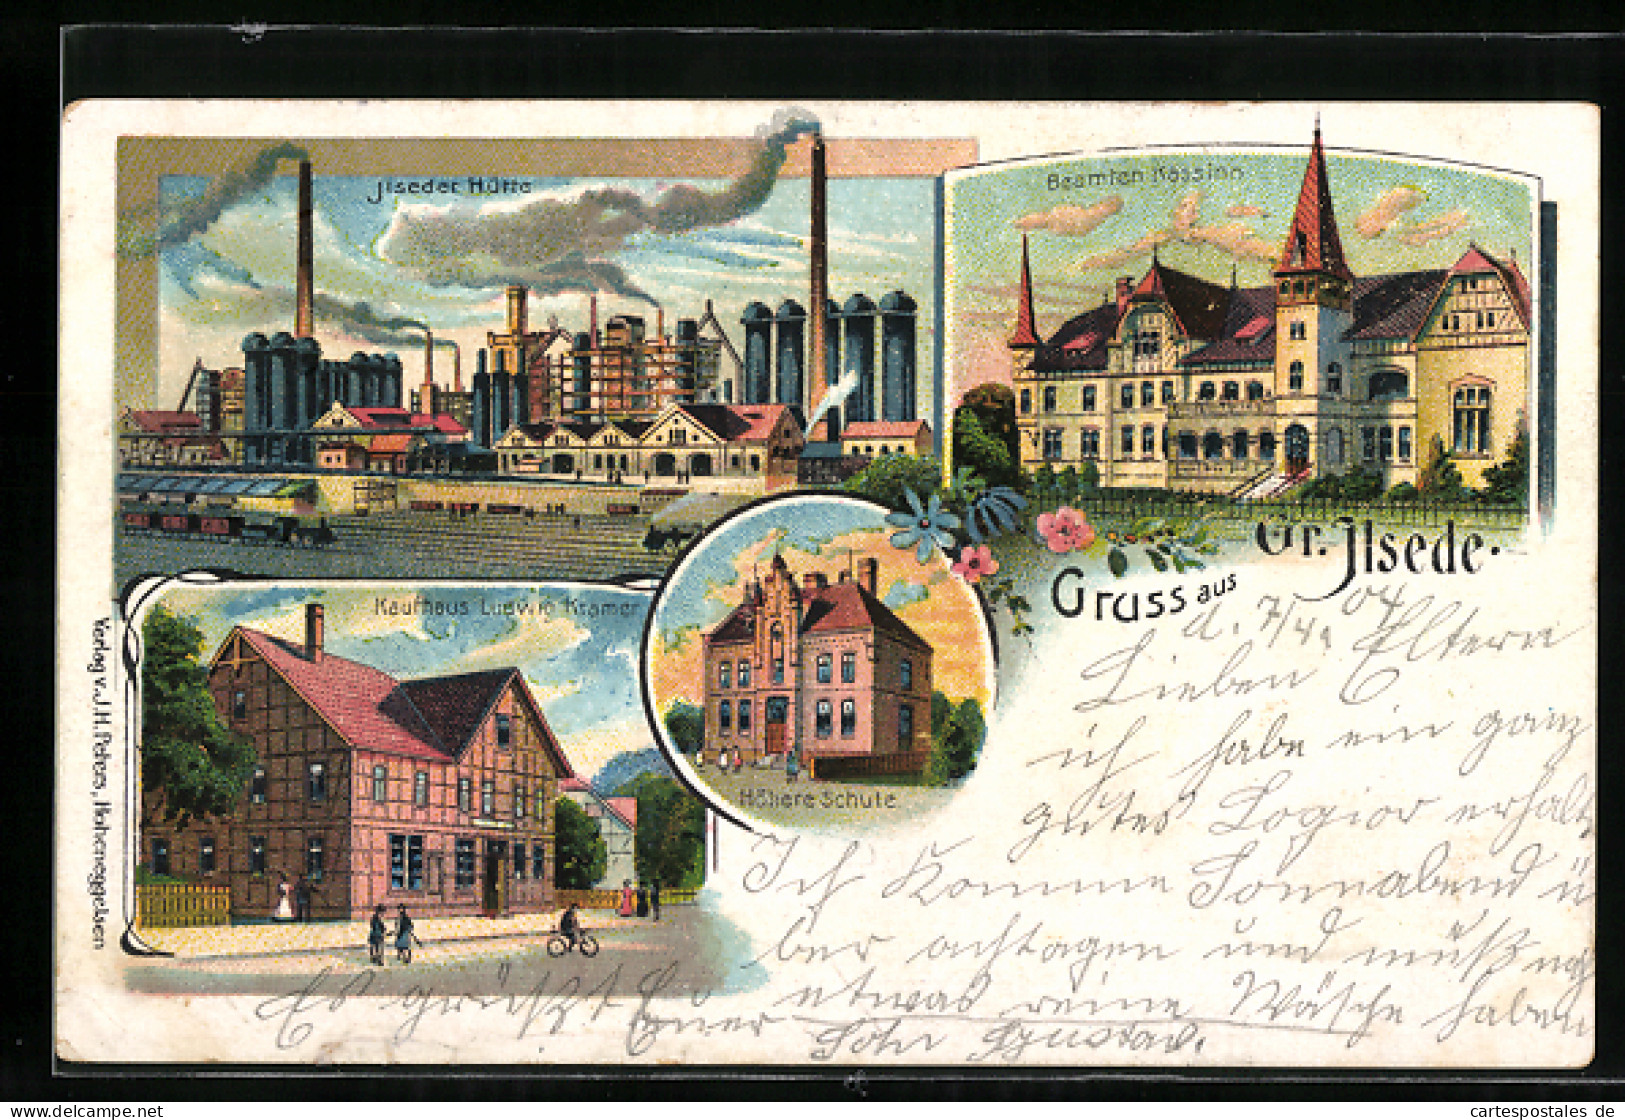 Jlseder Hütte
Beamten Kassino
Gruss aus Gr. Jlsede.
Kaufhaus Ludwig Kramer
Höhere Schule
Verlag v. J. H. Peters, Hoheneggelsen
d. 7/4 04
Lieben Eltern
ich habe ein ganz
gutes Logior erhalt
Ich Komme Sonnabend ü
ber achtagen und muß
etwas reine Wäsche haben
Es grüßt Euer Sohn Gustav.
cartespostales de